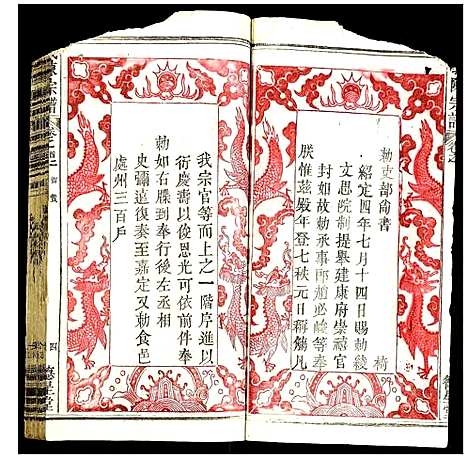 勑吏部尚書 椅
紹定四年七月十四日賜勑綾
文思院制提舉建康府崇禧官
封如故勑承事郎趙必𡹘等奉
朕惟慈嚴年登七秩元日稱觴凡
我宗官等而上之一階序進以
衍慶壽以俊恩光可依前件奉
勑如右牒到奉行後左丞相
史彌道復奏至嘉定又勑食邑
處州三百戶
宗譜
四